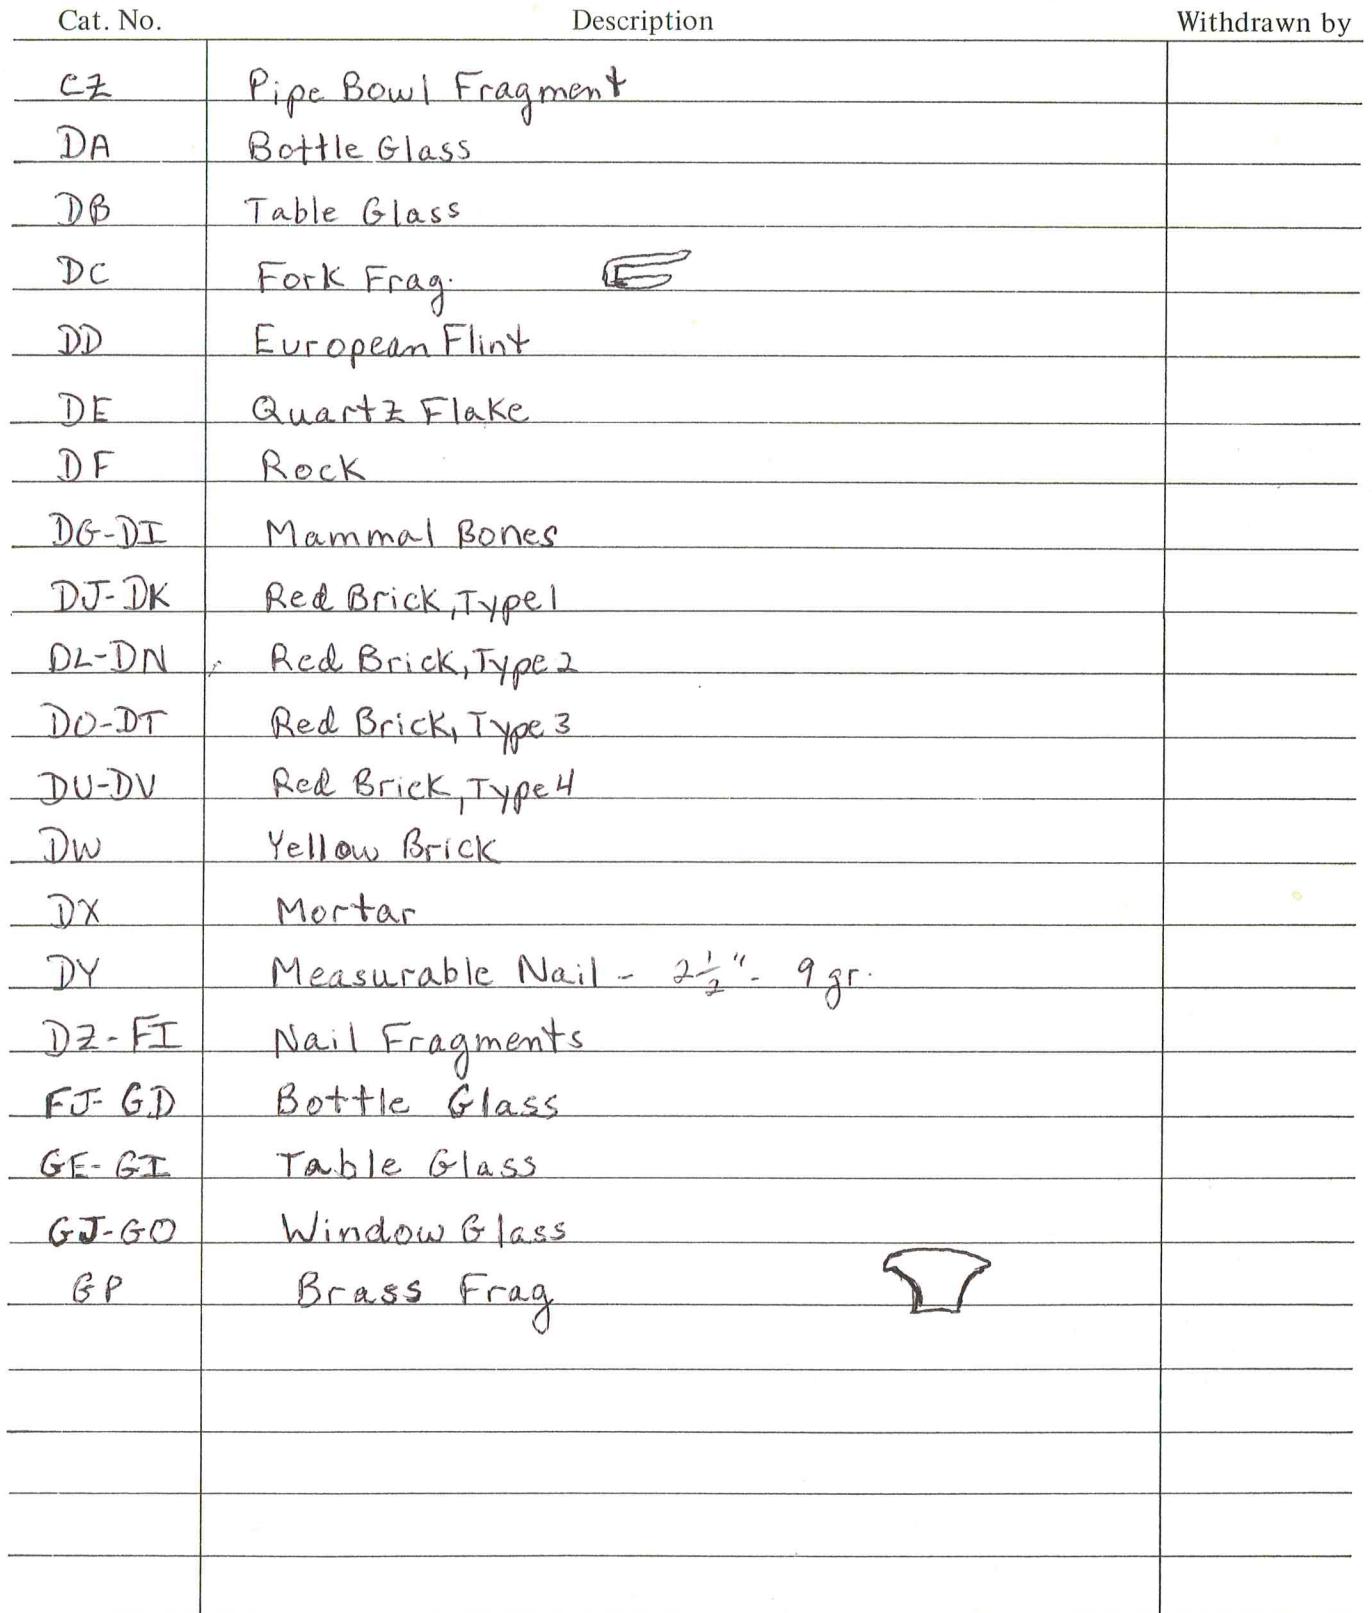 Cat. No. Description Withdrawn by
CZ Pipe Bowl Fragment
DA Bottle Glass
DB Table Glass
DC Fork Frag.
DD European Flint
DE Quartz Flake
DF Rock
DG-DI Mammal Bones
DJ-DK Red Brick, Type 1
DL-DN Red Brick, Type 2
DO-DT Red Brick, Type 3
DU-DV Red Brick, Type 4
DW Yellow Brick
DX Mortar
DY Measurable Nail - 2 1/2" - 9 gr.
DZ-FI Nail Fragments
FJ-GD Bottle Glass
GE-GI Table Glass
GJ-GO Window Glass
GP Brass Frag